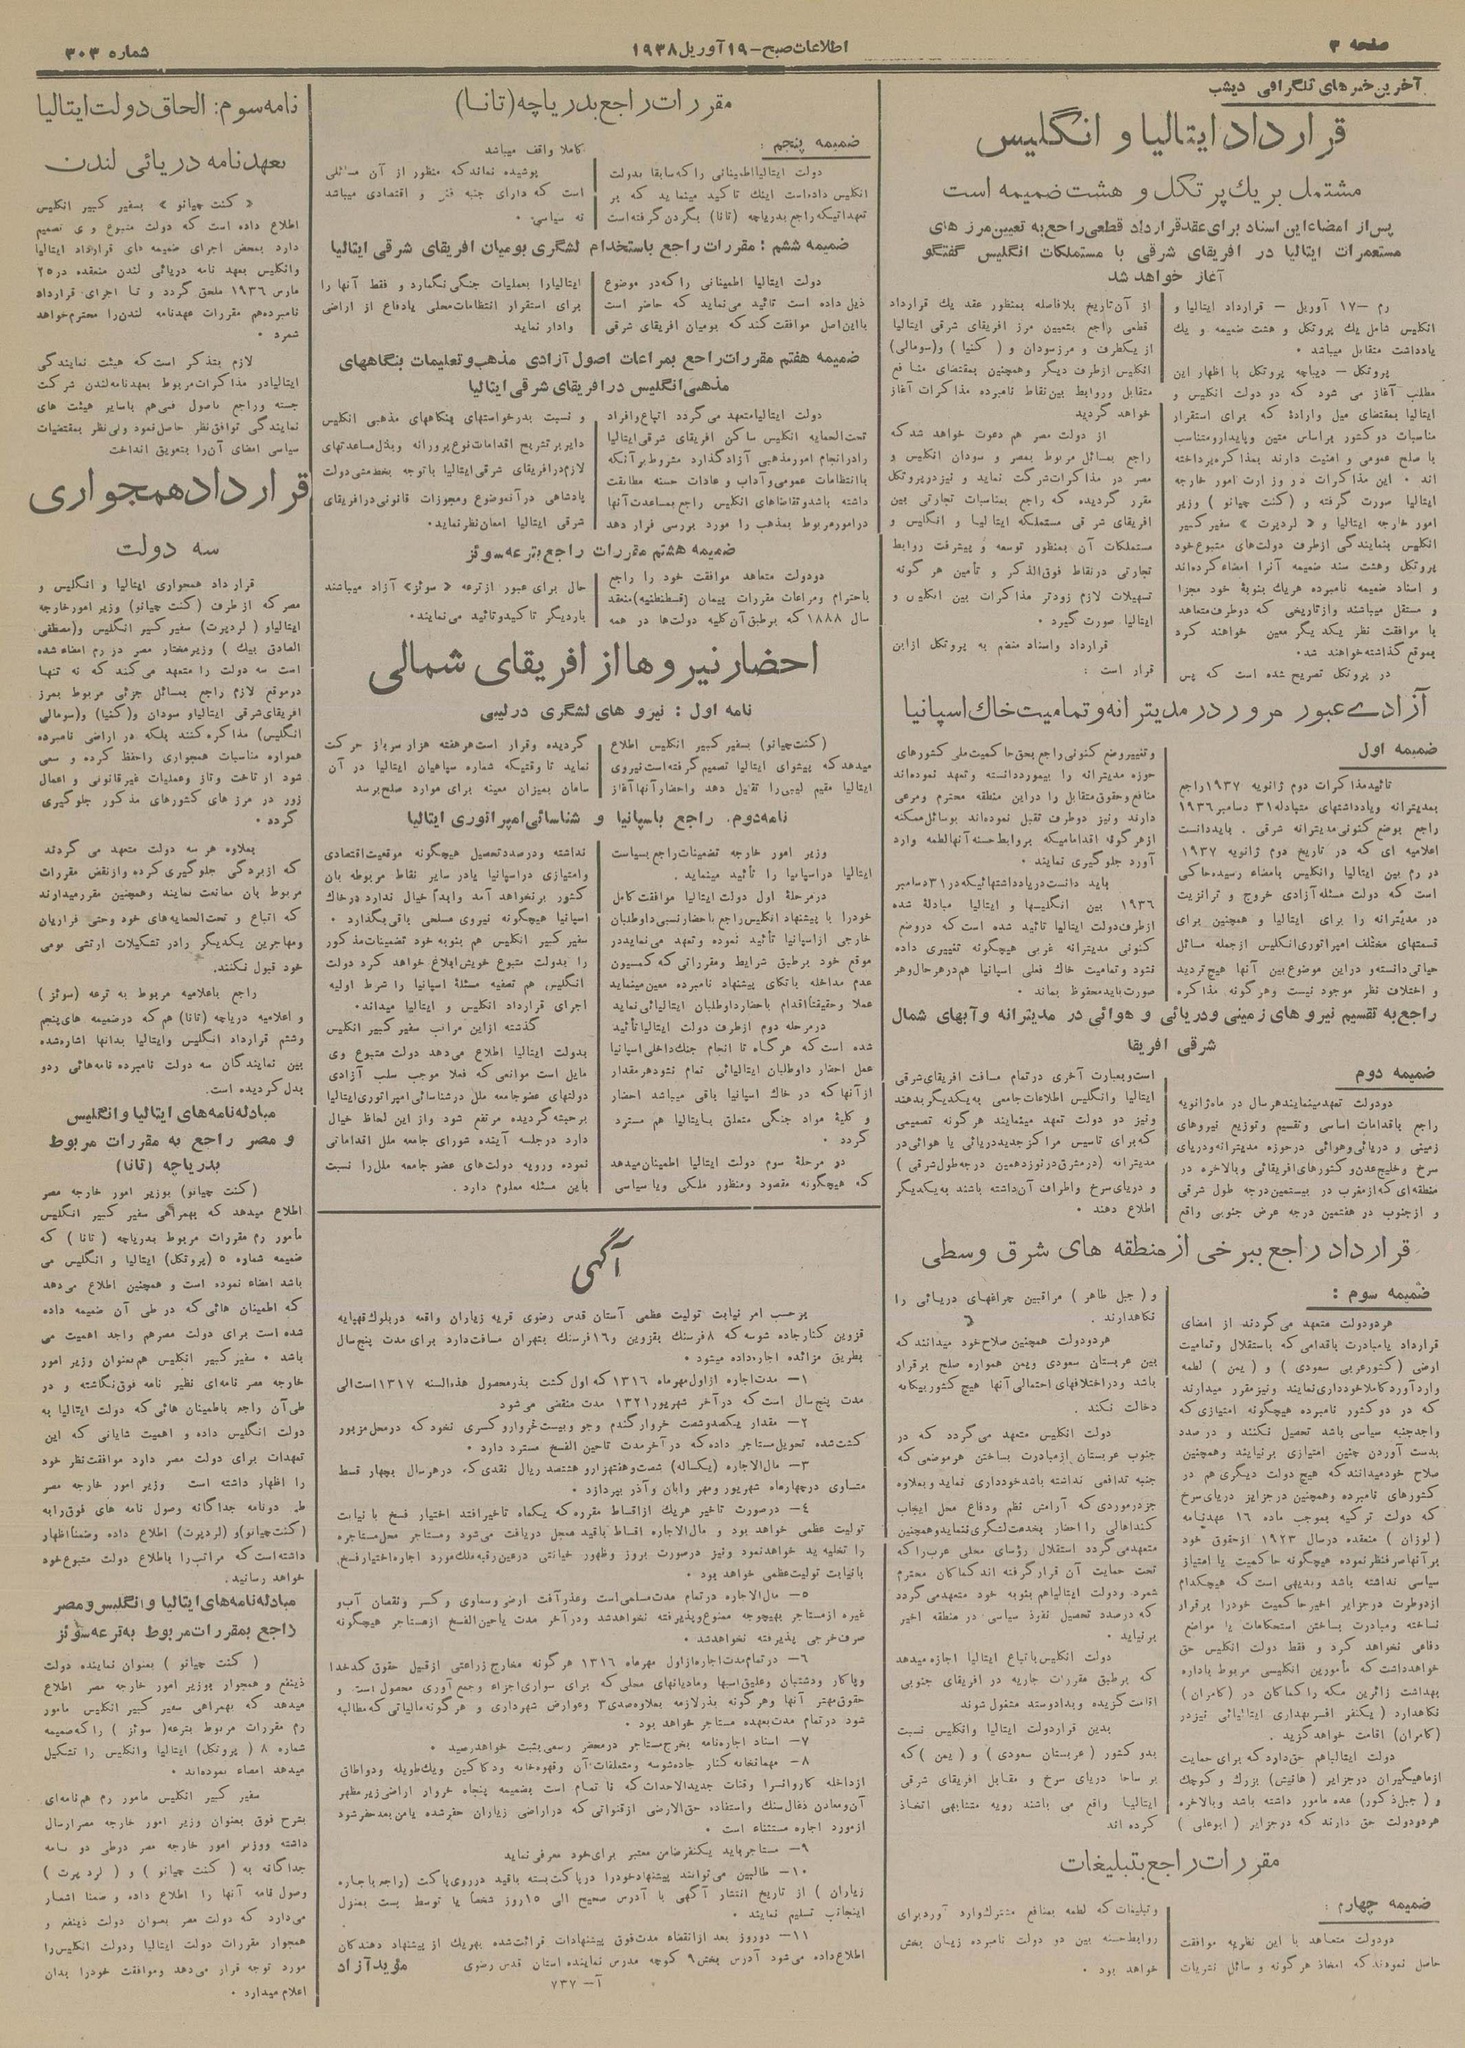 صفحه ۳
اطلاعات صبح - ۱۹ آوریل ۱۹۳۸
شماره ۳۰۳
آخرین خبرهای تلگرافی دیشب
قرارداد ایتالیا و انگلیس
مشتمل بر یك پرتکل و هشت ضمیمه است
پس از امضاء این اسناد برای عقد قرارداد قطعی راجع به تعیین مرز های
مستعمرات ایتالیا در افریقای شرقی با مستملکات انگلیس گفتگو
آغاز خواهد شد
رم – ۱۷ آوریل – قرارداد ایتالیا و
انگلیس شامل یك پروتکل و هشت ضمیمه و یك
یادداشت متقابل میباشد .
پروتکل – دیباچه پروتکل با اظهار این
مطلب آغاز می شود که دو دولت انگلیس و
ایتالیا بمقتضای میل وارادۀ که برای استقرار
مناسبات دو کشور براساس متین و پایدارو متناسب
با صلح عمومی و امنیت دارند بمذاکره پرداخته
اند . این مذاکرات در وزارت امور خارجه
ایتالیا صورت گرفته و (کنت چیانو) وزیر
امور خارجه ایتالیا و « لردپرت» سفیر کبیر
انگلیس بنمایندگی از طرف دولت های متبوع خود
پروتکل وهشت سند ضمیمه آنرا امضاء کرده‌اند
و اسناد ضمیمه نامبرده هریك بنوبۀ خود مجزا
و مستقل میباشند و از تاریخی که دو طرف متعاهد
با موافقت نظر یکدیگر معین خواهند کرد
بموقع گذاشته خواهند شد.
در پروتکل تصریح شده است که پس
از آن تاریخ بلافاصله بمنظور عقد یك قرارداد
قطعی راجع بتعیین مرز افریقای شرقی ایتالیا
از یکطرف و مرز سودان و ( کنیا ) و (سومالی)
انگلیس از طرف دیگر وهمچنین بمقتضای منافع
متقابل و روابط بین نقاط نامبرده مذاکرات آغاز
خواهد گردید
از دولت مصر هم دعوت خواهد شد که
راجع بمسائل مربوط بمصر و سودان انگلیس و
مصر در مذاکرات شرکت نماید و نیز در پرتکل
مقرر گردیده که راجع بمناسبات تجارتی بین
افریقای شرقی مستملکه ایتالیا و انگلیس و
مستملکات آن بمنظور توسعه و پیشرفت روابط
تجارتی در نقاط فوق الذکر و تأمین هر گونه
تسهیلات لازم زودتر مذاکرات بین انگلیس و
ایتالیا صورت گیرد .
قرارداد واسناد منضم به پروتکل از این
قرار است :
آزادی عبور مرور در مدیترانه و تمامیت خاك اسپانیا
ضمیمه اول
تائید مذاکرات دوم ژانویه ۱۹۳۷ راجع
بمدیترانه و یادداشتهای متبادله ۳۱ دسامبر ۱۹۳۶
راجع بوضع کنونی مدیترانه شرقی . باید دانست
اعلامیه ای که در تاریخ دوم ژانویه ۱۹۳۷
در رم بین ایتالیا وانگلیس بامضاء رسیده حاکی
است که دولت مسئله آزادی خروج و ترانزیت
در مدیترانه را برای ایتالیا و همچنین برای
قسمتهای مختلف امپراتوری انگلیس از جمله مسائل
حیاتی دانسته و در این موضوع بین آنها هیچ تردید
و اختلاف نظر موجود نیست و هر گونه مذاکره
و تغییر وضع کنونی راجع بحق حاکمیت ملی کشورهای
حوزه مدیترانه را بیمورد دانسته و تعهد نموده‌اند
منافع و حقوق متقابل را در این منطقه محترم و مرعی
دارند و نیز دو طرف تقبل نموده‌اند بوسائل ممکنه
از هر گونه اقدامیکه بروابط حسنه آنها لطمه وارد
آورد جلوگیری نمایند .
باید دانست در یادداشتهائیکه در ۳۱ دسامبر
۱۹۳۶ بین انگلیسها و ایتالیا مبادلۀ شده
از طرف دولت ایتالیا تائید شده است که در وضع
کنونی مدیترانه غربی هیچگونه تغییری داده
نشود و تمامیت خاك فعلی اسپانیا هم در هر حال و هر
صورت باید محفوظ بماند .
راجع به تقسیم نیرو های زمینی و دریائی و هوائی در مدیترانه و آبهای شمال
شرقی افریقا
ضمیمه دوم
دو دولت تعهد مینمایند هر سال در ماه ژانویه
راجع باقدامات اساسی و تقسیم و توزیع نیروهای
زمینی و دریائی و هوائی در حوزه مدیترانه و دریای
سرخ و خلیج عدن و کشورهای افریقائی و بالاخره در
منطقه‌ای که از مغرب در بیستمین درجه طول شرقی
و از جنوب در هفتمین درجه عرض جنوبی واقع
است و بعبارت آخری در تمام مسافت افریقای شرقی
ایتالیا وانگلیس اطلاعات جامعی به یکدیگر بدهند
و نیز دو دولت تعهد مینمایند هر گونه تصمیمی
که برای تاسیس مراکز جدید دریائی یا هوائی در
مدیترانه (در مشرق در نوزدهمین درجه طول شرقی )
و دریای سرخ و اطراف آن داشته باشند به یکدیگر
اطلاع دهند .
قرارداد راجع ببرخی از منطقه های شرق وسطی
ضمیمه سوم :
هر دو دولت متعهد می گردند از امضای
قرارداد یا مبادرت باقدامی که باستقلال و تمامیت
ارضی (کشور عربی سعودی ) و ( یمن ) لطمه
وارد آورد کاملا خودداری نمایند و نیز مقرر میدارند
که در دو کشور نامبرده هیچگونه امتیازی که
واجد جنبه سیاسی باشد تحصیل نکنند و در صدد
بدست آوردن چنین امتیازی بر نیایند و همچنین
صلاح خود میدانند که هیچ دولت دیگری هم در
کشورهای نامبرده و همچنین در جزایر دریای سرخ
که دولت ترکیه بموجب ماده ۱۶ عهدنامه
( لوزان ) منعقده در سال ۱۹۲۳ از حقوق خود
بر آنها صرفنظر نموده هیچگونه حاکمیت یا امتیاز
سیاسی نداشته باشد و بدیهی است که هیچکدام
از دو طرف در جزایر اخیر حاکمیت خود را برقرار
نساخته و مبادرت بساختن استحکامات یا مواضع
دفاعی نخواهد کرد و فقط دولت انگلیس حق
خواهد داشت که مأمورین انگلیسی مربوط باداره
بهداشت زائرین مکه را کماکان در (کامران)
نگاهدارد ( یکنفر افسر بهداری ایتالیائی نیز در
(کامران) اقامت خواهد گزید.
دولت ایتالیا هم حق دارد که برای حمایت
از ماهیگیران در جزایر (هانیش) بزرك و کوچك
و ( جبل ذکور) عده مامور داشته باشد و بالاخره
هر دو دولت حق دارند که در جزایر ( ابوعلی )
و ( جبل طاهر ) مراقبین چراغهای دریائی را
نگاهدارند .
هر دو دولت همچنین صلاح خود میدانند که
بین عربستان سعودی و یمن همواره صلح برقرار
باشد و در اختلافهای احتمالی آنها هیچ کشور بیگانه
دخالت نکند .
دولت انگلیس متعهد می گردد که در
جنوب عربستان از مبادرت بساختن هر موضعی که
جنبه تدافعی نداشته باشد خودداری نماید و بعلاوه
جز در موردی که آرامش نظم و دفاع محل ایجاب
کند اهالی را احضار بخدمت لشگری ننماید و همچنین
متعهد می گردد استقلال رؤسای محلی عرب را که
تحت حمایت آن قرار گرفته اند کماکان محترم
شمرد و دولت ایتالیا هم بنوبه خود متعهد می گردد
که در صدد تحصیل نفوذ سیاسی در منطقه اخیر
بر نیاید .
دولت انگلیس باتباع ایتالیا اجازه میدهد
که بر طبق مقررات جاریه در افریقای جنوبی
اقامت گزیده و بداد وستد مشغول شوند
بدین قرار دولت ایتالیا وانگلیس نسبت
بدو کشور ( عربستان سعودی ) و ( یمن ) که
بر ساحل دریای سرخ و مقابل افریقای شرقی
ایتالیا واقع می باشند رویه متشابهی اتخاذ
کرده اند
مقررات راجع بتبلیغات
ضمیمه چهارم :
دو دولت متعاهد با این نظریه موافقت
حاصل نمودند که اتخاذ هر گونه وسائل نشریات
و تبلیغات که لطمه بمنافع مشترك وارد آورد برای
روابط حسنه بین دو دولت نامبرده زیان بخش
خواهد بود .
مقررات راجع بدریاچه (تانا)
ضمیمه پنجم :
دولت ایتالیا اطمینانی را که سابقا بدولت
انگلیس داده است اینك تاکید مینماید که بر
تعهداتیکه راجع بدریاچه (تانا) بگردن گرفته است
کاملا واقف میباشد
پوشیده نماند که منظور از آن مسائلی
است که دارای جنبه فنی و اقتصادی میباشد
نه سیاسی .
ضمیمه ششم : مقررات راجع باستخدام لشگری بومیان افریقای شرقی ایتالیا
دولت ایتالیا اطمینانی را که در موضوع
ذیل داده است تائید می نماید که حاضر است
با این اصل موافقت کند که بومیان افریقای شرقی
ایتالیا را بعملیات جنگی نگمارد و فقط آنها را
برای استقرار انتظامات محلی یا دفاع از اراضی
وادار نماید
ضمیمه هفتم مقررات راجع بمراعات اصول آزادی مذهب و تعلیمات بنگاههای
مذهبی انگلیس در افریقای شرقی ایتالیا
دولت ایتالیا متعهد می گردد اتباع و افراد
تحت الحمایه انگلیس ساکن افریقای شرقی ایتالیا
را در انجام امور مذهبی آزاد گذارد مشروط بر آنکه
با انتظامات عمومی و آداب و عادات حسنه مطابقت
داشته باشد و تقاضاهای انگلیس راجع بمساعدت آنها
در امور مربوط بمذهب را مورد بررسی قرار دهد
و نسبت بدرخواستهای بنگاههای مذهبی انگلیس
دایر بر تشریح اقدامات نوع پرورانه و بذل مساعدتهای
لازم در افریقای شرقی ایتالیا با توجه بخط مشی دولت
پادشاهی در آنموضوع و مجوزات قانونی در افریقای
شرقی ایتالیا امعان نظر نماید.
ضمیمه هشتم مقررات راجع بترعه سوئز
دو دولت متعاهد موافقت خود را راجع
باحترام و مراعات مقررات پیمان (قسطنطنیه) منعقد
سال ۱۸۸۸ که بر طبق آن کلیه دولت ها در همه
حال برای عبور از ترعه « سوئز » آزاد میباشند
بار دیگر تاکید و تائید می نمایند.
احضار نیروها از افریقای شمالی
نامه اول : نیرو های لشگری در لیبی
(کنت چیانو) بسفیر کبیر انگلیس اطلاع
میدهد که پیشوای ایتالیا تصمیم گرفته است نیروی
ایتالیا مقیم لیبی را تقلیل دهد و احضار آنها آغاز
گردیده و قرار است هر هفته هزار سرباز حرکت
نماید تا وقتیکه شماره سپاهیان ایتالیا در آن
سامان بمیزان معینه برای موارد صلح برسد
نامه دوم. راجع باسپانیا و شناسائی امپراتوری ایتالیا
وزیر امور خارجه تضمینات راجع بسیاست
ایتالیا در اسپانیا را تأئید مینماید.
در مرحلۀ اول دولت ایتالیا موافقت کامل
خود را با پیشنهاد انگلیس راجع باحضار نسبی داوطلبان
خارجی از اسپانیا تأئید نموده و تعهد می نماید در
موقع خود بر طبق شرایط و مقرراتی که کمسیون
عدم مداخله با تکای پیشنهاد نامبرده معین مینماید
عملا و حقیقتا اقدام باحضار داوطلبان ایتالیائی نماید
در مرحله دوم از طرف دولت ایتالیا تأئید
شده است که هر گاه تا انجام جنك داخلی اسپانیا
عمل احضار داوطلبان ایتالیائی تمام نشود هر مقدار
از آنها که در خاك اسپانیا باقی میباشد احضار
و کلیۀ مواد جنگی متعلق بایتالیا هم مسترد
گردد .
در مرحلۀ سوم دولت ایتالیا اطمینان میدهد
که هیچگونه مقصود و منظور ملکی و یا سیاسی
نداشته و در صدد تحصیل هیچگونه موقعیت اقتصادی
و امتیازی در اسپانیا یا در سایر نقاط مربوطه بان
کشور بر نخواهد آمد و ابداً خیال ندارد در خاك
اسپانیا هیچگونه نیروی مسلحی باقی بگذارد .
سفیر کبیر انگلیس هم بنوبه خود تضمینات مذکور
را بدولت متبوع خویش ابلاغ خواهد کرد دولت
انگلیس هم تصفیه مسئلۀ اسپانیا را شرط اولیه
اجرای قرارداد انگلیس و ایتالیا میداند.
گذشته از این مراتب سفیر کبیر انگلیس
بدولت ایتالیا اطلاع می دهد دولت متبوع وی
مایل است موانعی که فعلا موجب سلب آزادی
دولتهای عضو جامعه ملل در شناسائی امپراتوری ایتالیا
بر حبشه گردیده مرتفع شود و از این لحاظ خیال
دارد در جلسه آینده شورای جامعه ملل اقداماتی
نموده و رویه دولت های عضو جامعه ملل را نسبت
باین مسئله معلوم دارد .
آگهی
بر حسب امر نیابت تولیت عظمی آستان قدس رضوی قریه زیاران واقعه در بلوك قهپایه
قزوین کنار جاده شوسه که ۸ فرسنك بقزوین و ۱۶ فرسنك بتهران مسافت دارد برای مدت پنج سال
بطریق مزائده اجاره داده میشود .
۱– مدت اجاره از اول مهرماه ۱۳۱۶ که اول کشت بذر محصول هذه السنه ۱۳۱۷ است الی
مدت پنج سال است که در آخر شهریور ۱۳۲۱ مدت منقضی می شود
۲– مقدار یکصد و شصت خروار گندم و جو و بیست خروار و کسری نخود که در محل مزبور
کشت شده تحویل مستاجر داده که در آخر مدت تاحین الفسخ مسترد دارد .
۳– مال الاجاره (یکساله) شصت و هفتهزار و هشتصد ریال نقدی که در هر سال بچهار قسط
متساوی در چهار ماه شهریور و مهر و ابان و آذر بپردازد .
۴– در صورت تاخیر هر یك از اقساط مقرره که یکماه تاخیر افتد اختیار فسخ با نیابت
تولیت عظمی خواهد بود و مال الاجاره اقساط باقید معجل دریافت می شود و مستاجر محل مستاجره
را تخلیه ید خواهد نمود و نیز در صورت بروز و ظهور خیانتی در عین رقبه ملك مورد اجاره اختیار فسخ
با نیابت تولیت عظمی خواهد بود .
۵– مال الاجاره در تمام مدت مسلمی است و عذر آفت ارضی و سماوی و کسر و نقصان آب و
غیره از مستاجر بهیچوجه مسموع و پذیرفته نخواهد شد و در آخر مدت یا حین الفسخ از مستاجر هیچگونه
صرف خرجی پذیرفته نخواهد شد .
۶– در تمام مدت اجاره از اول مهرماه ۱۳۱۶ هر گونه مخارج زراعتی از قبیل حقوق کدخدا
و پاکار و دشتبان و علیق اسبها و مادیانهای محلی که برای سواری اجزاء و جمع آوری محصول است و
حقوق مهتر آنها و هر گونه بذر لازمه بعلاوه صدی ۳ و عوارض شهرداری و هر گونه مالیاتی که مطالبه
شود در تمام مدت بعهده مستاجر خواهد بود .
۷– اسناد اجاره نامه بخرج مستاجر در محضر رسمی بثبت خواهد رسید .
۸– مهمانخانه کنار جاده شوسه و متعلقات آن و قهوه خانه و دکاکین و یك طویله و دو اطاق
از داخله کاروانسرا وقنات جدید الاحداث که نا تمام است بضمیمه پنجاه خروار اراضی زیر مظهر
آن و معادن ذغال سنك و استفاده حق الارضی از قنواتی که در اراضی زیاران حفر شده یا من بعد حفر شود
از مورد اجاره مستثناء است .
۹– مستاجر باید یکنفر ضامن معتبر برای خود معرفی نماید
۱۰– طالبین می توانند پیشنهاد خود را در پاکت بسته باقید در روی پاکت (راجع باجاره
زیاران ) از تاریخ انتشار آگهی با آدرس صحیح الی ۱۵ روز شخصاً یا توسط پست بمنزل
اینجانب تسلیم نمایند .
۱۱– دو روز بعد از انقضاء مدت فوق پیشنهادات قرائت شده بهر یك از پیشنهاد دهندگان
اطلاع داده می شود آدرس بخش ۹ کوچه مدرس نماینده استان قدس رضوی مؤید آزاد
آ– ۷۳۷
نامه سوم: الحاق دولت ایتالیا
بعهدنامه دریائی لندن
« کنت چیانو » بسفیر کبیر انگلیس
اطلاع داده است که دولت متبوع وی تصمیم
دارد بمحض اجرای ضمیمه های قرارداد ایتالیا
وانگلیس بعهد نامه دریائی لندن منعقده در ۲۵
مارس ۱۹۳۶ ملحق گردد و تا اجرای قرارداد
نامبرده هم مقررات عهدنامه لندن را محترم خواهد
شمرد .
لازم بتذکر است که هیئت نمایندگی
ایتالیا در مذاکرات مربوط بعهدنامه لندن شرکت
جسته و راجع باصول فنی هم باسایر هیئت های
نمایندگی توافق نظر حاصل نمود ولی نظر بمقتضیات
سیاسی امضای آن را بتعویق انداخت
قرارداد همجواری
سه دولت
قرارداد همجواری ایتالیا و انگلیس و
مصر که از طرف (کنت چیانو) وزیر امور خارجه
ایتالیا و ( لردپرت) سفیر کبیر انگلیس و (مصطفی
الصادق بیك ) وزیر مختار مصر در رم امضاء شده
است سه دولت را متعهد می کند که نه تنها
در موقع لازم راجع بمسائل جزئی مربوط بمرز
افریقای شرقی ایتالیا و سودان و (کنیا) و (سومالی
انگلیس) مذاکره کنند بلکه در اراضی نامبرده
همواره مناسبات همجواری را حفظ کرده و سعی
شود از تاخت و تاز وعملیات غیر قانونی و اعمال
زور در مرز های کشورهای مذکور جلوگیری
گردد .
بعلاوه هر سه دولت متعهد می گردند
که از بردگی جلوگیری کرده و از نقض مقررات
مربوط بان ممانعت نمایند وهمچنین مقرر میدارند
که اتباع و تحت الحمایه های خود و حتی فراریان
و مهاجرین یکدیگر را در تشکیلات ارتشی بومی
خود قبول نکنند.
راجع باعلامیه مربوط به ترعه (سوئز )
و اعلامیه دریاچه (تانا) هم که در ضمیمه های پنجم
وشتم قرارداد انگلیس وایتالیا بدانها اشاره شده
بین نمایندگان سه دولت نامبرده نامه هائی ردو
بدل گردیده است.
مبادله نامه های ایتالیا و انگلیس
و مصر راجع به مقررات مربوط
بدریاچه (تانا)
(کنت چیانو) بوزیر امور خارجه مصر
اطلاع میدهد که بهمراهی سفیر کبیر انگلیس
مأمور رم مقررات مربوط بدریاچه ( تانا ) که
ضمیمه شماره ۵ (پروتکل) ایتالیا و انگلیس می
باشد امضاء نموده است و همچنین اطلاع می دهد
که اطمینان هائی که در طی آن ضمیمه داده
شده است برای دولت مصر هم واجد اهمیت می
باشد . سفیر کبیر انگلیس هم بعنوان وزیر امور
خارجه مصر نامه ای نظیر نامه فوق نگاشته و در
طی آن راجع باطمینان هائی که دولت ایتالیا به
دولت انگلیس داده و اهمیت شایانی که این
تعهدات برای دولت مصر دارد موافقت نظر خود
را اظهار داشته است وزیر امور خارجه مصر
طی دو نامه جداگانه وصول نامه های فوق را به
(کنت چیانو) و (لردپرت) اطلاع داده و ضمناً اظهار
داشته است که مراتب را باطلاع دولت متبوع خود
خواهد رسانید.
مبادله نامه های ایتالیا و انگلیس و مصر
راجع بمقررات مربوط به ترعه سوئز
( کنت چیانو ) بعنوان نماینده دولت
ذینفع و همجوار بوزیر امور خارجه مصر اطلاع
میدهد که بهمراهی سفیر کبیر انگلیس مامور
رم مقررات مربوط بترعه ( سوئز ) را که ضمیمه
شماره ۸ ( پروتکل) ایتالیا وانگلیس را تشکیل
میدهد امضاء نموده‌اند .
سفیر کبیر انگلیس مامور رم هم نامه‌ای
بشرح فوق بعنوان وزیر امور خارجه مصر ارسال
داشته و وزیر امور خارجه مصر در طی دو نامه
جداگانه به ( کنت چیانو ) و ( لرد پرت )
وصول نامه آنها را اطلاع داده و ضمنا اشعار
می دارد که دولت مصر بعنوان دولت ذینفع و
همجوار مقررات دولت ایتالیا و دولت انگلیس را
مورد توجه قرار می دهد و موافقت خود را بدان
اعلام میدارد .